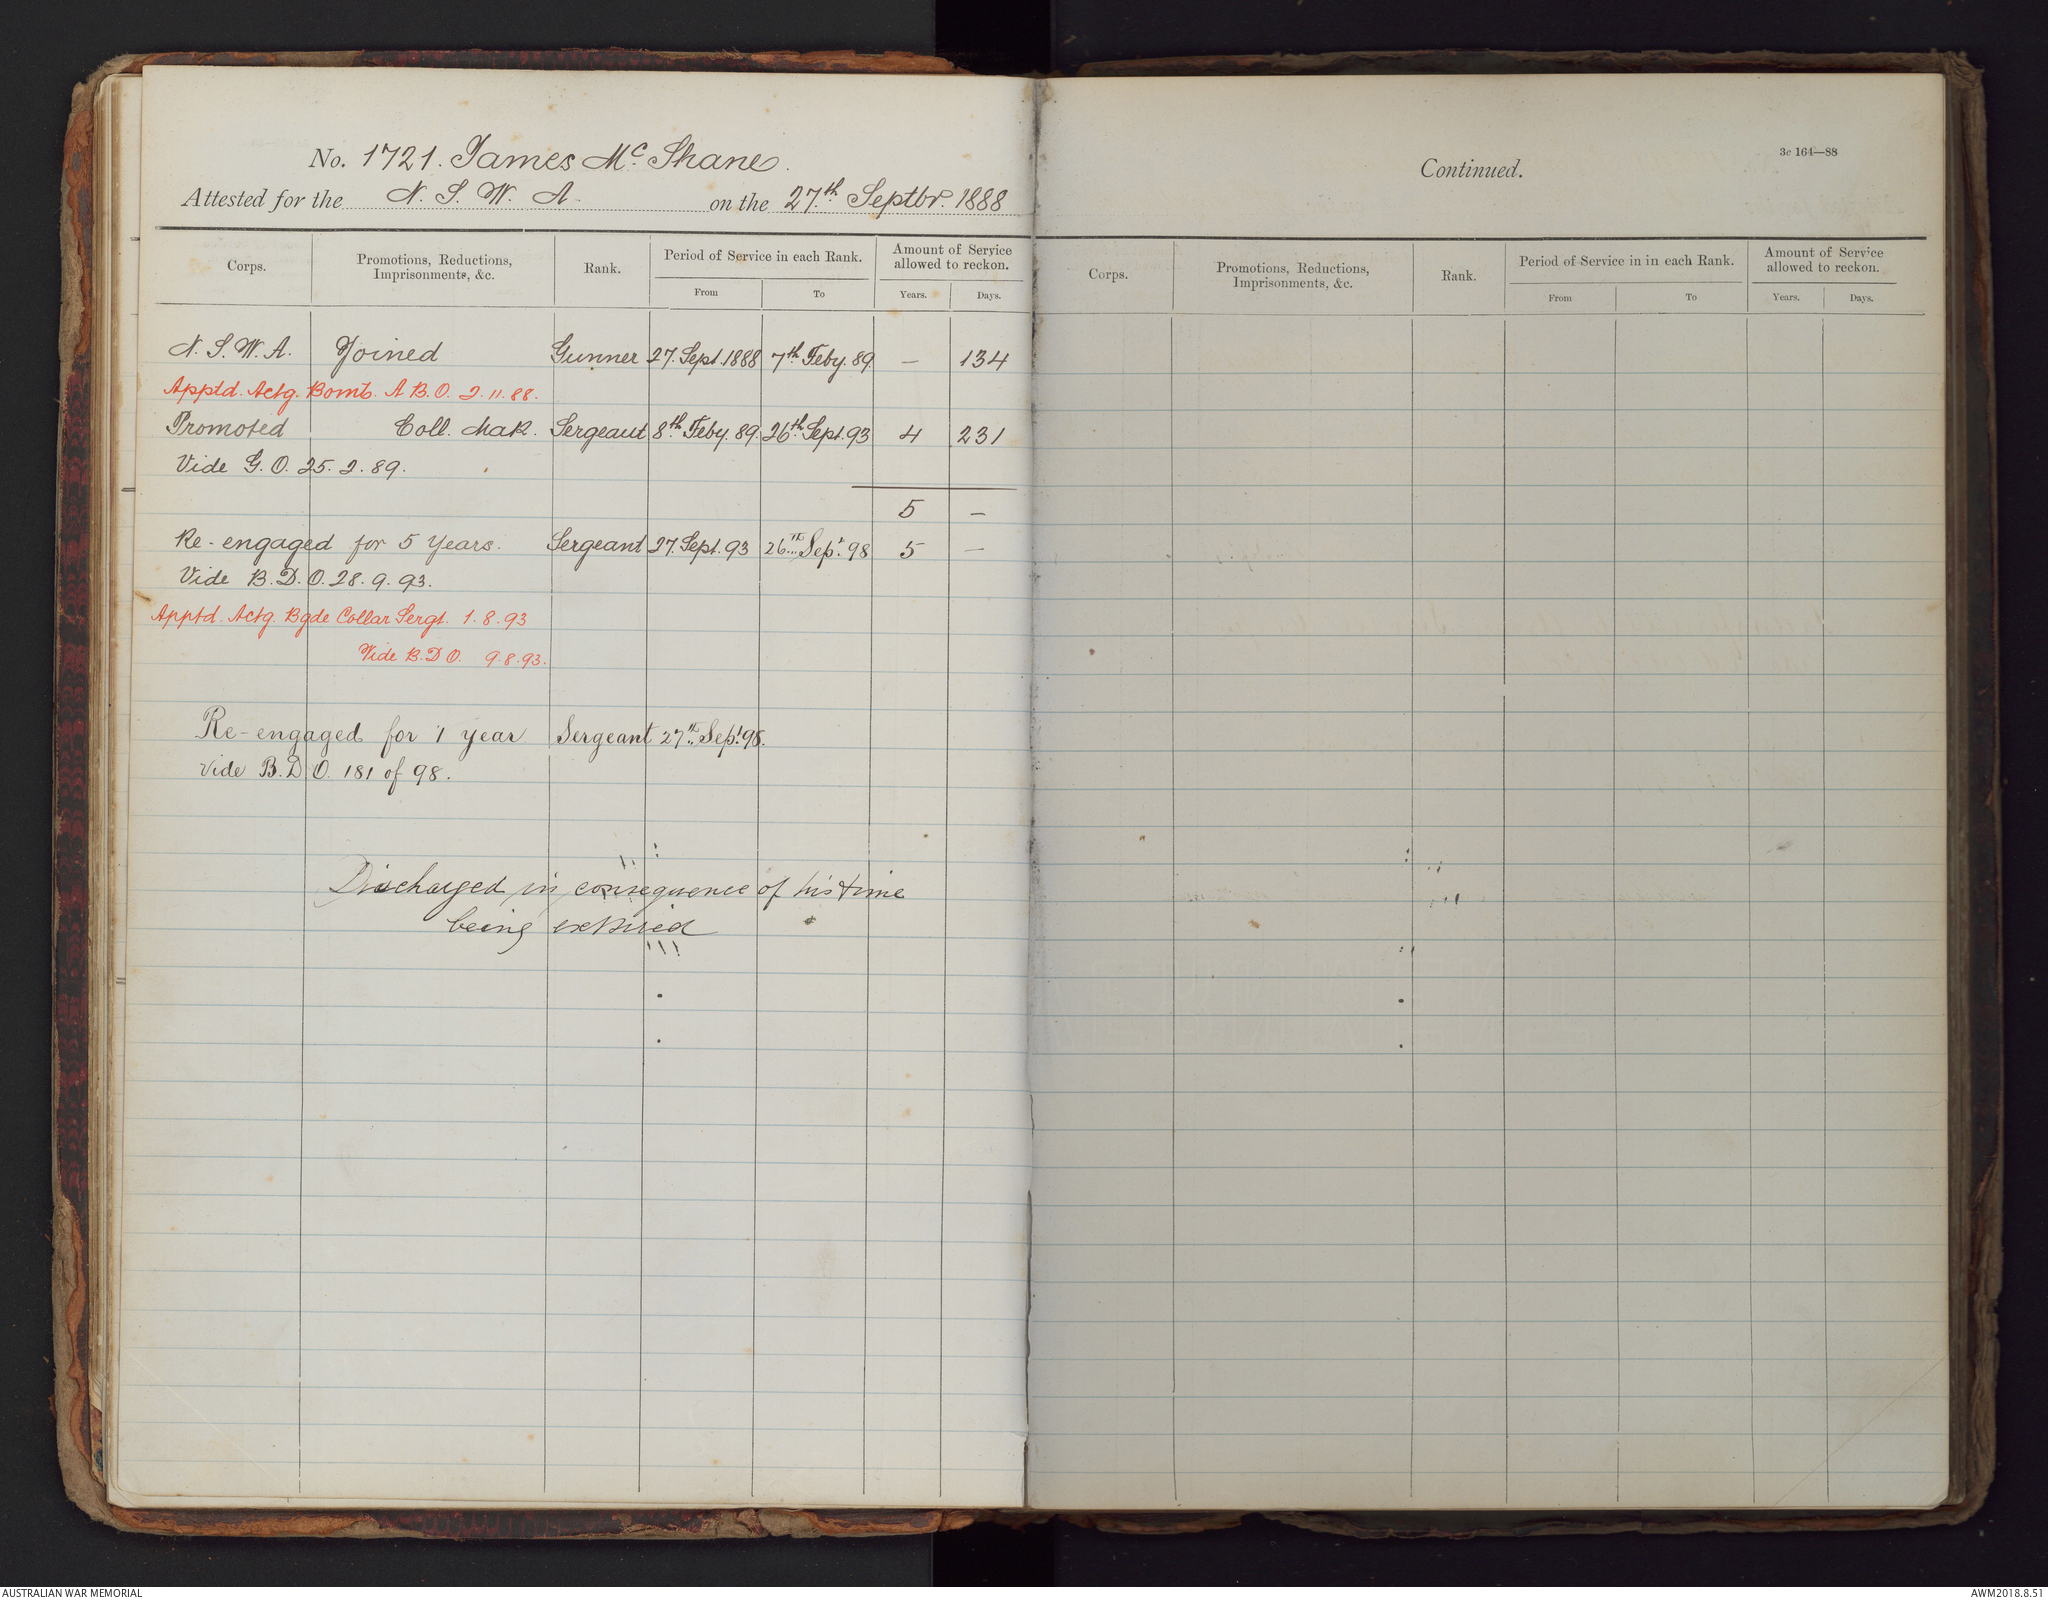 No. 1721. James McShane.
Attested for the N. S. W. A. on the 27.th Septbr. 1888
Corps. Promotions, Reductions, Imprisonments, &c. Rank. Period of Service in each Rank. Amount of Service allowed to reckon.
From To Years. Days.
N. S. W. A. Joined Gunner 27. Sept. 1888 7th Feby. 89. — 134
Apptd. Actg. Bomb. A B. O. 2. 11. 88.
Promoted Coll. Mak. Sergeant 8th Feby. 89. 26th Sept. 93 4 231
Vide G. O. 25. 2. 89.
5 —
Re-engaged for 5 Years. Sergeant 27. Sept. 93 26th Sept. 98 5 —
Vide B. D. O. 28. 9. 93.
Apptd. Actg. Bgde Collar Sergt. 1. 8. 93
Vide B. D O. 9. 8. 93.
Re-engaged for 1 year Sergeant 27th Sept. 98.
Vide B. D O. 181 of 98.
Discharged in consequence of his time
being expired
3c 164—88
Continued.
Corps. Promotions, Reductions, Imprisonments, &c. Rank. Period of Service in in each Rank. Amount of Service allowed to reckon.
From To Years. Days.
AUSTRALIAN WAR MEMORIAL AWM2018.8.51